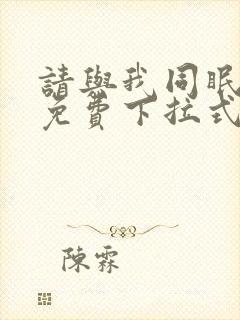 請與我同眠
免費下拉式
陳霖